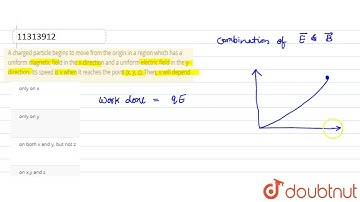 11313912
A charged particle begins to move from the origin in a region which has a
uniform magnetic field in the x direction and a uniform electric field in the y-
direction. Its speed is v when it reaches the point (x, y, z). Then, v will depend
only on x
only on y
on both x and y, but not z
on x,y and z
Combination of E & B
work done = qE
doubtnut